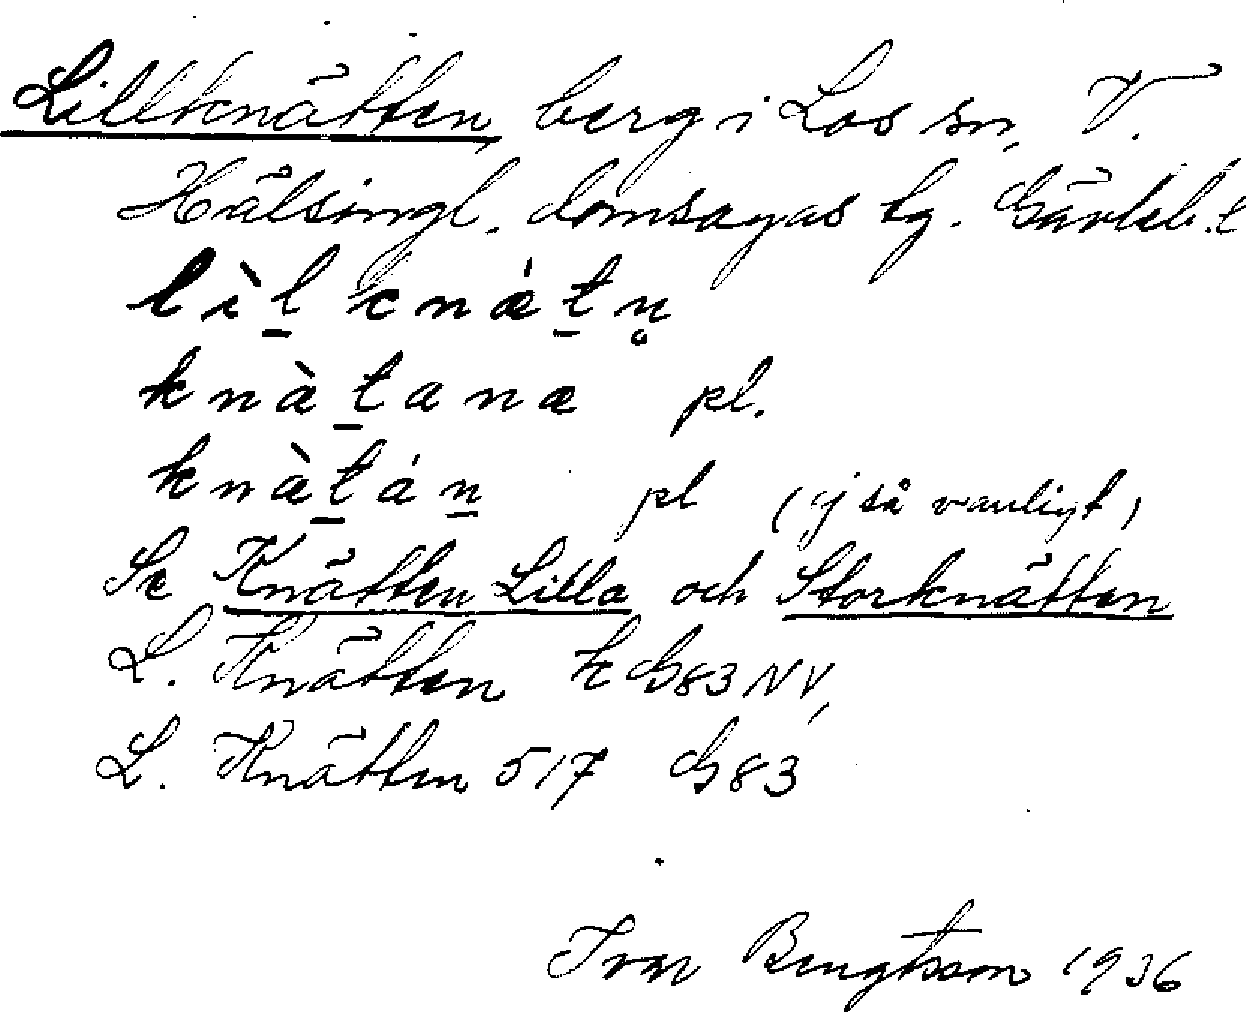 Lillknätten, berg i Los sn, V.
Hälsingl. domsagas tg. Gävleb. l
lìl̠knǽt̠n̥
knæ̀t̠anæ pl.
knæ̀t̠án̠ pl (ej så vanligt)
Se Knätten Lilla och Storknätten
L. Knätten k G83 NV,
L. Knätten 517 G83
Ivar Bengtsson 1936